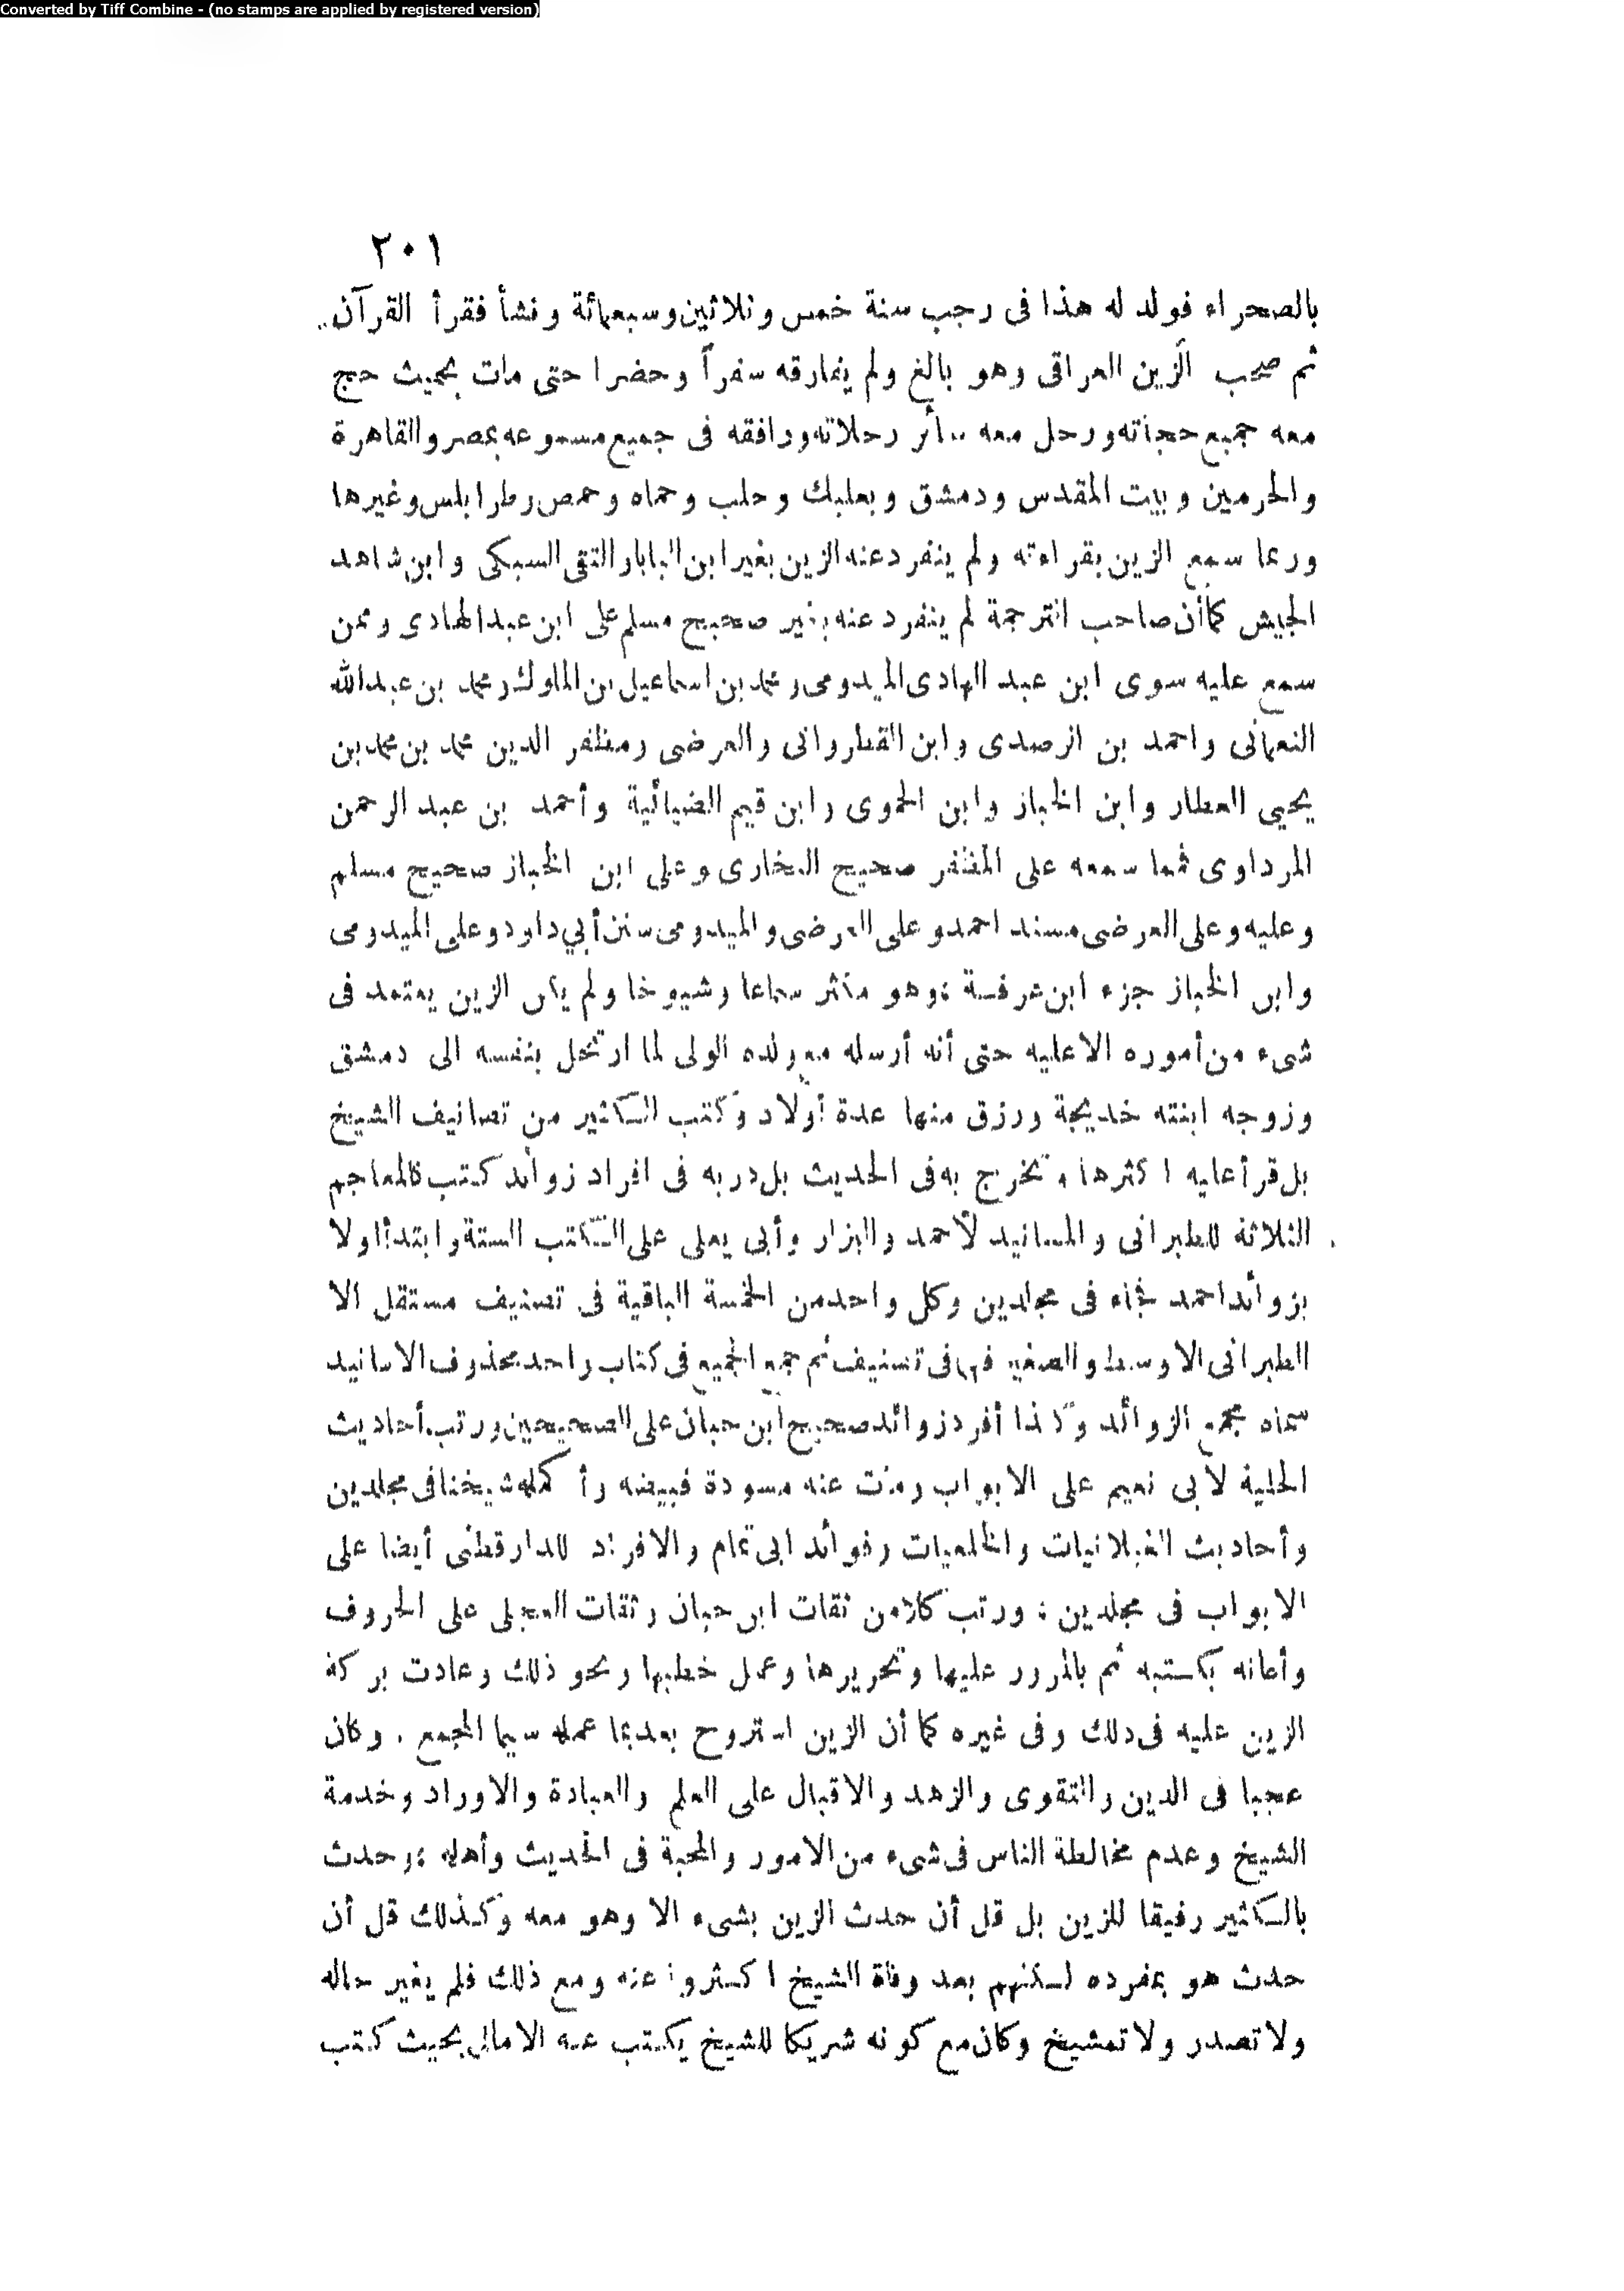 Converted by Tiff Combine - (no stamps are applied by registered version)
٢٠١
بالصحراء فولد له هذا فى رجب سنة خمس وثلاثين وسبعمائة ونشأ فقرأ القرآن
ثم صحب الزين العراقى وهو بالغ ولم يفارقه سفراً وحضرا حتى مات بحيث حج
معه جميع حجاته ورحل معه سائر رحلاته ورافقه فى جميع مسموعه بمصر والقاهرة
والحرمين وبيت المقدس ودمشق وبعلبك وحلب وحماه وحمص وطرابلس وغيرها
وربما سمع الزين بقراءته ولم ينفرد عنه الزين بغير ابن البابا والتقى السبكى وابن شاهد
الجيش كما أن صاحب الترجمة لم ينفرد عنه بغير صحيح مسلم على ابن عبد الهادى وممن
سمع عليه سوى ابن عبد الهادى الميدومى ومحمد بن اسماعيل بن الملوك ومحمد بن عبد الله
النعمانى واحمد بن الرصدى وابن القطروانى والعرضى ومظفر الدين محمد بن محمد بن
يحيى العطار وابن الخباز وابن الحموى وابن قيم الضيائية وأحمد بن عبد الرحمن
المرداوى فما سمعه على المظفر صحيح البخارى وعلى ابن الخباز صحيح مسلم
وعليه وعلى العرضى مسند احمد وعلى العرضى والميدومى سنن أبي داود وعلى الميدومى
وابن الخباز جزء ابن عرفة ؛ وهو مكثر سماعا وشيوخا ولم يكن الزين يعتمد فى
شىء من أموره الا عليه حتى أنه أرسله مع ولده الولى لما ارتحل بنفسه الى دمشق
وزوجه ابنته خديجة ورزق منها عدة أولاد وكتب الكثير من تصانيف الشيخ
بل قرأ عليه اكثرها وتخرج به فى الحديث بل دربه فى افراد زوائد كتب كالمعاجم
الثلاثة للطبرانى والمسانيد لأحمد والبزار وأبى يعلى على الكتب الستة وابتدأ اولا
بزوائد احمد فجاء فى مجلدين وكل واحد من الخمسة الباقية فى تصنيف مستقل الا
الطبرانى الاوسط والصغير فهما فى تصنيف ثم جمع الجميع فى كتاب واحد محذوف الاسانيد
سماه مجمع الزوائد وكذا أفرد زوائد صحيح ابن حبان على الصحيحين ورتب أحاديث
الحلية لأبى نعيم على الابواب ومات عنه مسودة فبيضه وأكمله شيخنا فى مجلدين
وأحاديث الغيلانيات والخلعيات وفوائد ابى تمام والافراد للدارقطنى أيضا على
الابواب فى مجلدين ؛ ورتب كلا من ثقات ابن حبان وثقات العجلى على الحروف
وأعانه بكتبه ثم بالمرور عليها وتحريرها وعمل خطبها ونحو ذلك وعادت بركة
الزين عليه فى ذلك وفى غيره كما أن الزين استروح بعد بما عمله سيما المجمع . وكان
عجبا فى الدين والتقوى والزهد والاقبال على العلم والعبادة والاوراد وخدمة
الشيخ وعدم مخالطة الناس فى شىء من الامور والمحبة فى الحديث وأهله ؛ وحدث
بالكثير رفيقا للزين بل قل أن حدث الزين بشىء الا وهو معه وكذلك قل أن
حدث هو بمفرده لكنهم بعد وفاة الشيخ اكثروا عنه ومع ذلك فلم يغير حاله
ولا تصدر ولا تمشيخ وكان مع كونه شريكا للشيخ يكتب عنه الامالى بحيث كتب